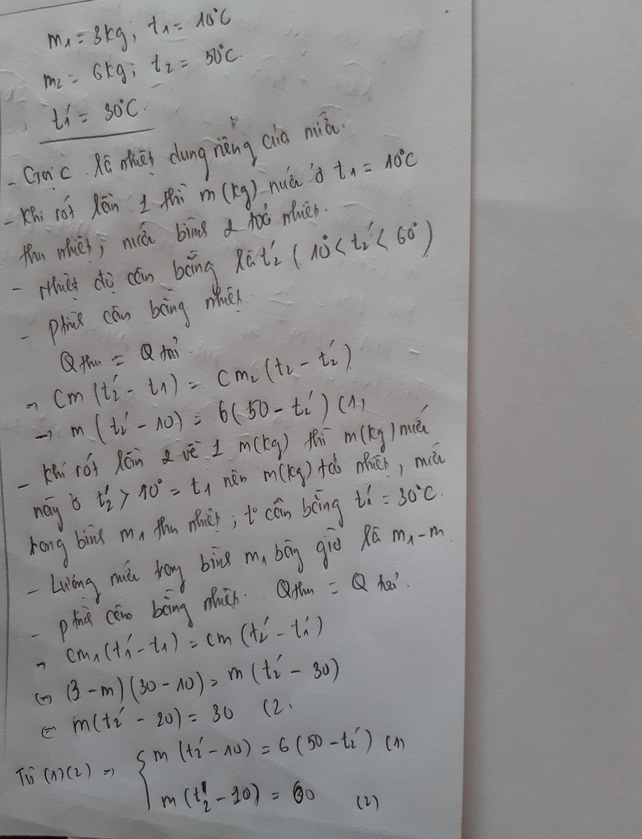 m1 = 3kg; t1 = 10°C
m2 = 6kg; t2 = 50°C
t1' = 30°C
- Gọi C là nhiệt dung riêng của nước.
- Khi rót lần 1 thì m(kg) nước ở t1 = 10°C
thu nhiệt, nước bình 2 toả nhiệt.
- Nhiệt độ cân bằng là t2' (10° < t2' < 60°)
- ptrình cân bằng nhiệt.
Q thu = Q toả
→ Cm(t2' - t1) = Cm2(t2 - t2')
→ m(t2' - 10) = 6(50 - t2') (1)
- Khi rót lần 2 về 1 m(kg) thì m(kg) nước
này ở t2' > 10° = t1 nên m(kg) toả nhiệt, nước
trong bình m1 thu nhiệt; t° cân bằng t1' = 30°C.
- Lượng nước trong bình m1 bây giờ là m1 - m
- ptrình cân bằng nhiệt. Q thu = Q toả.
→ cm1(t1' - t1) = cm(t2' - t1')
⇔ (3 - m)(30 - 10) = m(t2' - 30)
⇔ m(t2' - 20) = 30 (2.
Từ (1)(2) ⇒ { m(t2' - 10) = 6(50 - t2') (1)
m(t2' - 10) = 60 (2)